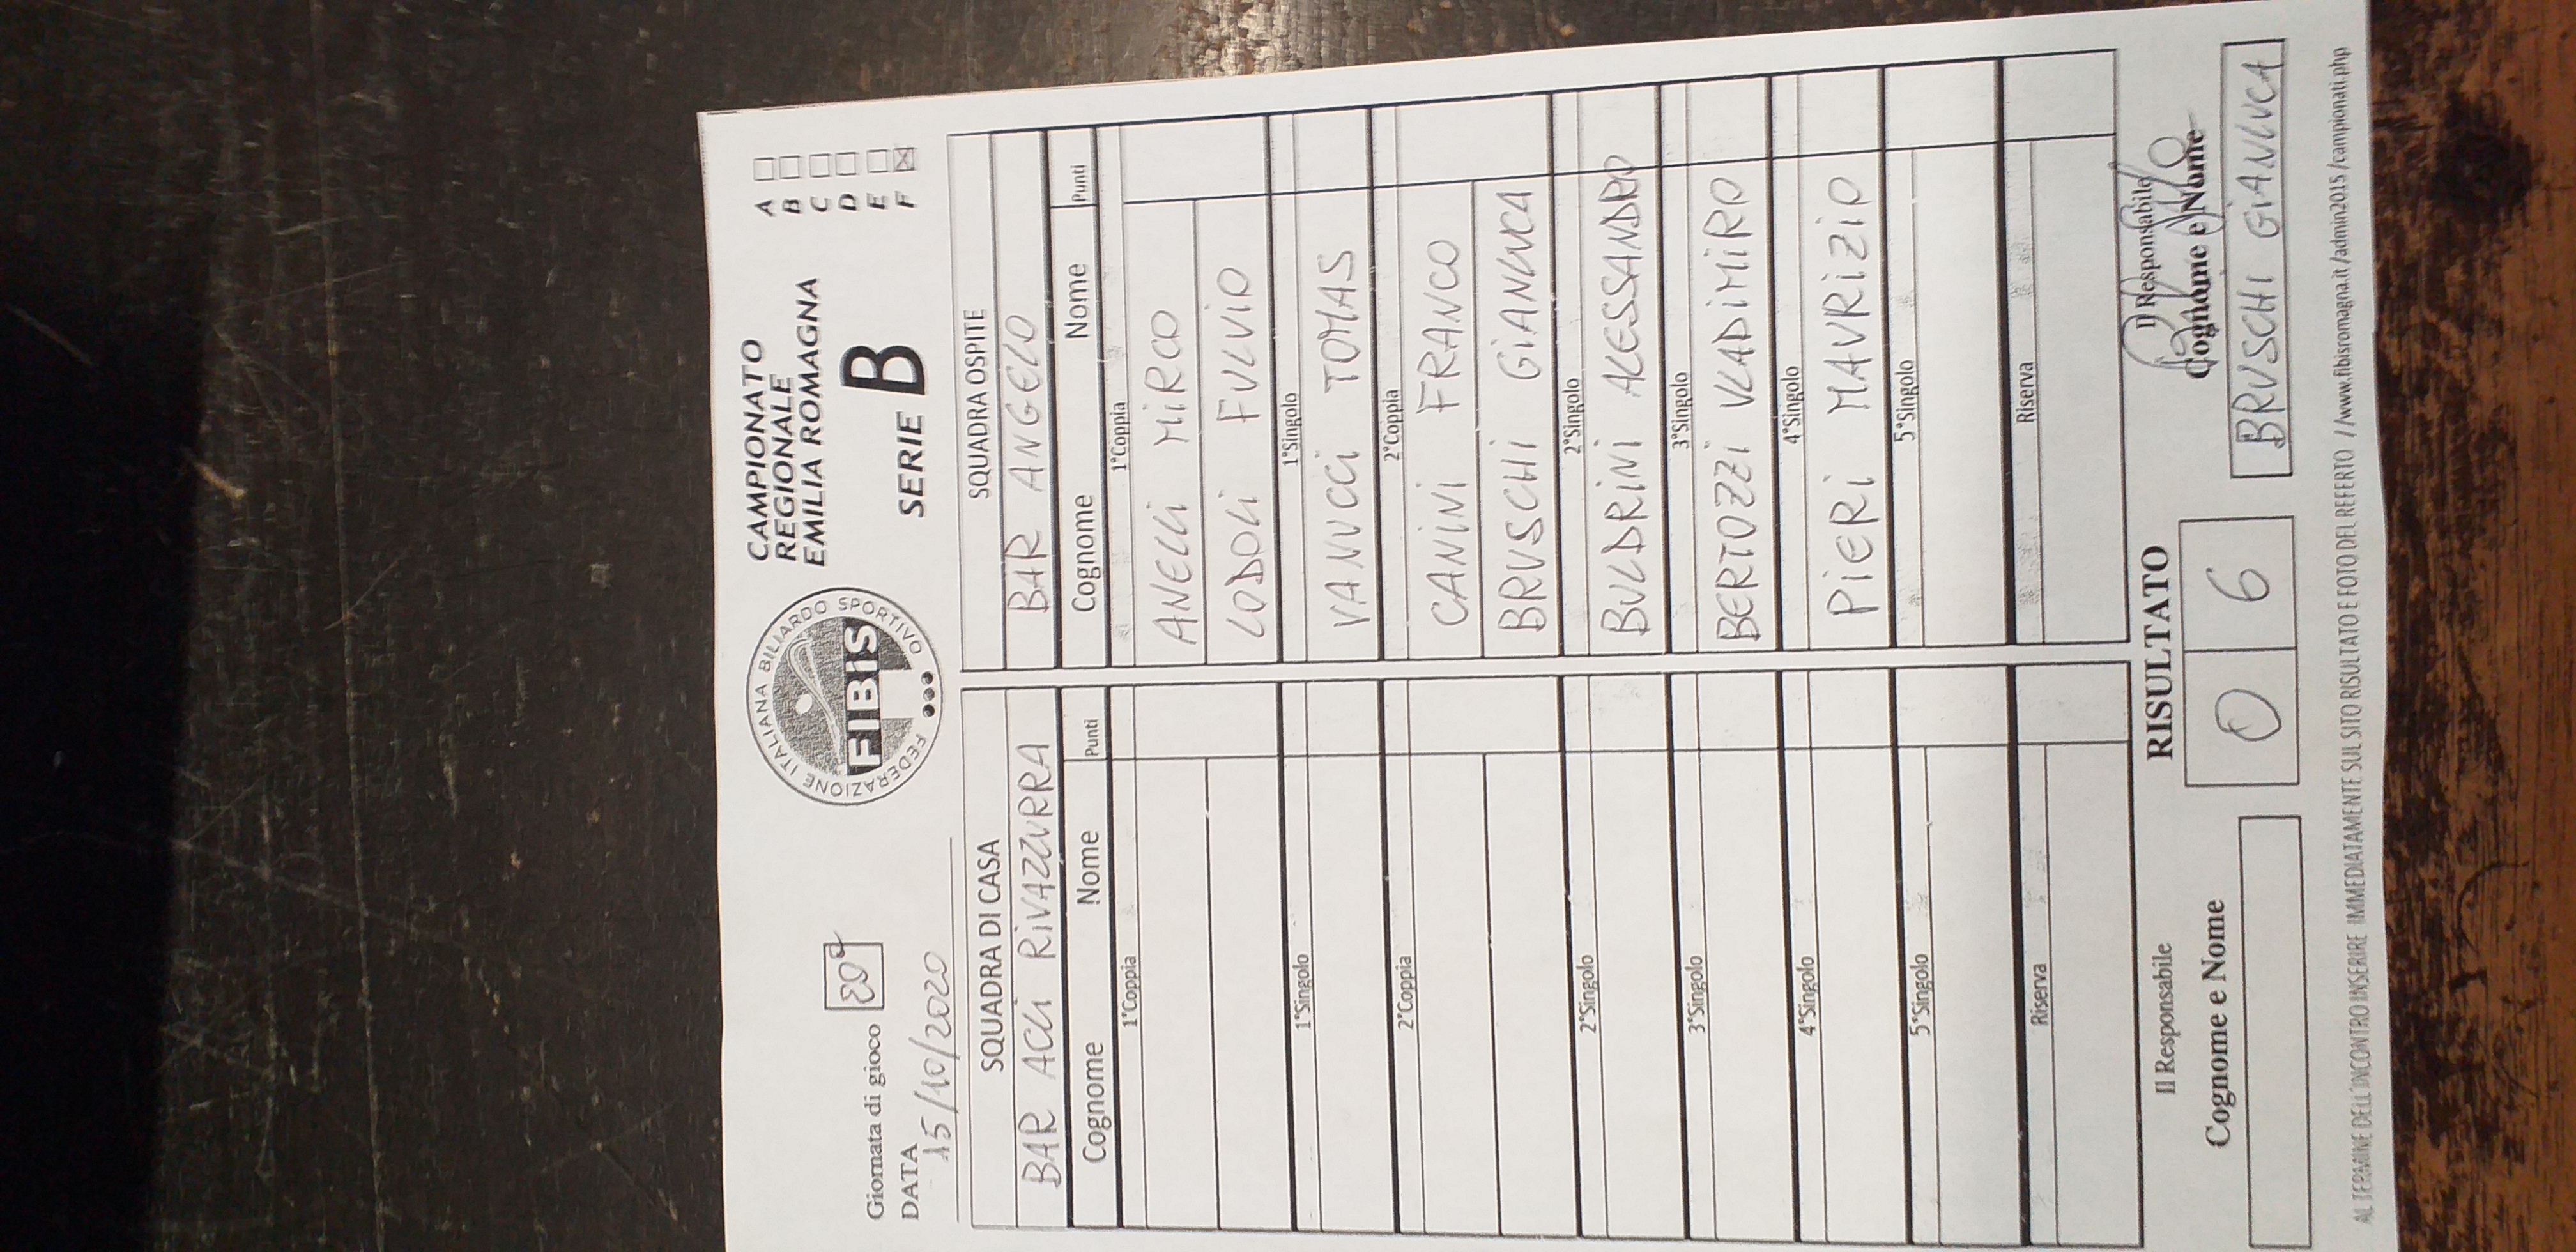 FEDERAZIONE ITALIANA BILIARDO SPORTIVO
FIBiS
CAMPIONATO
REGIONALE
EMILIA ROMAGNA
SERIE B
A
B
C
D
E
F
Giornata di gioco
DATA
15/10/2020
SQUADRA DI CASA
BAR ACLI RIVAZZURRA
Cognome Nome Punti
1°Coppia
1°Singolo
2°Coppia
2°Singolo
3°Singolo
4°Singolo
5°Singolo
Riserva
SQUADRA OSPITE
BAR ANGELO
Cognome Nome Punti
1°Coppia
ANELLI MIRCO
LODOLI FULVIO
1°Singolo
VANUCCI TOMAS
2°Coppia
CANINI FRANCO
BRUSCHI GIANLUCA
2°Singolo
BULDRINI ALESSANDRO
3°Singolo
BERTOZZI VLADIMIRO
4°Singolo
PIERI MAURIZIO
5°Singolo
Riserva
Il Responsabile
Cognome e Nome
RISULTATO
0 6
Il Responsabile
Cognome e Nome
BRUSCHI GIANLUCA
AL TERMINE DELL'INCONTRO INSERIRE IMMEDIATAMENTE SUL SITO RISULTATO E FOTO DEL REFERTO //www.fibisromagna.it/admin2015/campionati.php